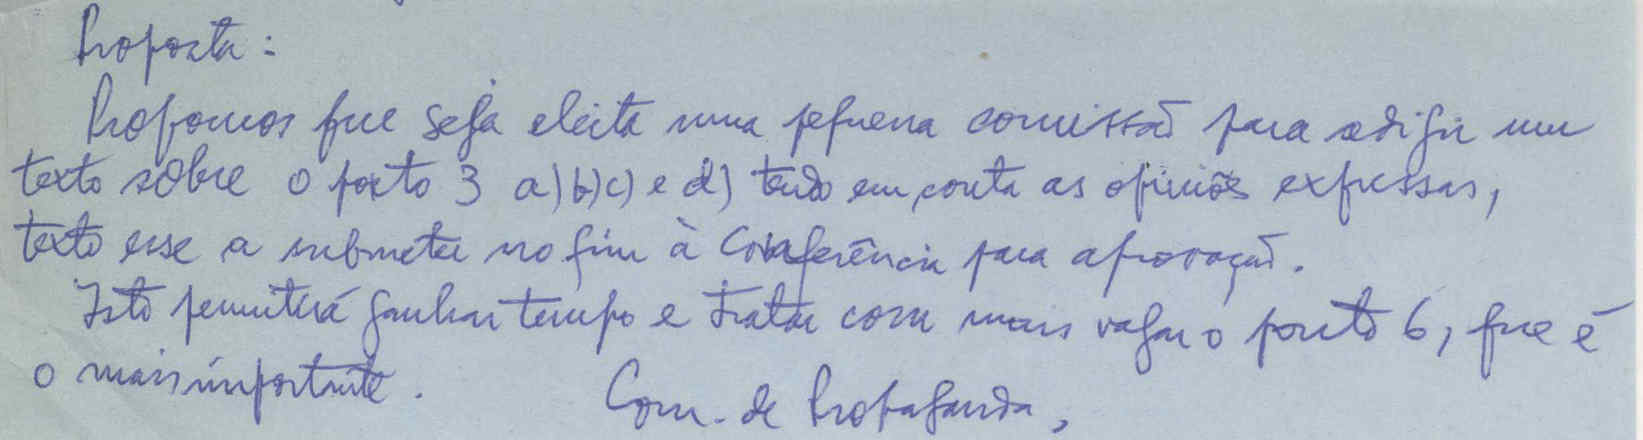 Proposta:
Propomos que seja eleita uma pequena comissão para redigir um
texto sobre o ponto 3 a) b) c) e d) tendo em conta as opiniões expressas,
texto esse a submeter no fim à Conferência para aprovação.
Isto permitirá ganhar tempo e tratar com mais vagar o ponto 6, que é
o mais importante.
Com. de Propaganda,